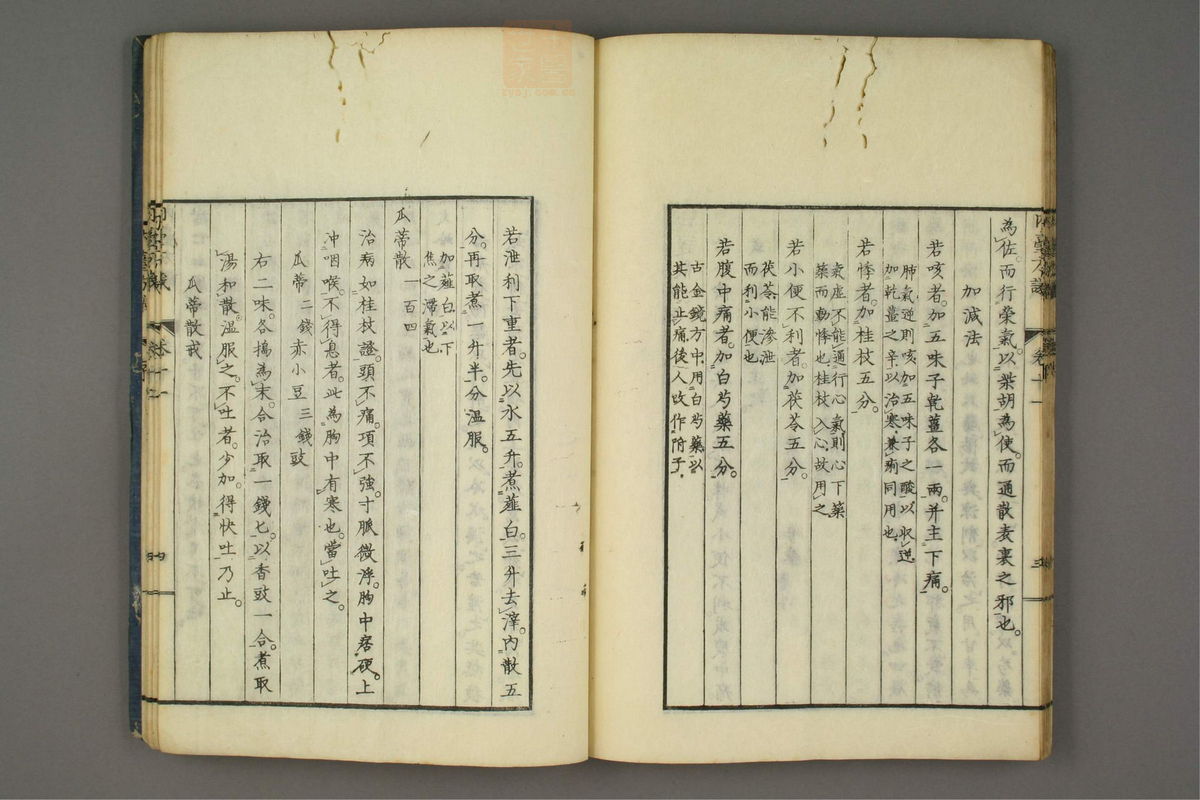 為佐。而行榮氣。以柴胡為使。而通散表裏之邪也。
加減法
若咳者。加五味子乾薑各一兩。并主下痢。
肺氣逆則咳加五味子之酸以收逆
加乾薑之辛以治寒兼痢同用也
若悸者。加桂枝五分。
氣虛不能通行心氣則心下築
築而動悸也桂枝入心故用之
若小便不利者。加茯苓五分。
茯苓能滲泄
而利小便也
若腹中痛者。加白芍藥五分。
古金鏡方中用白芍藥以
其能止痛後人改作附子
若泄利下重者。先以水五升。煮薤白。三升去滓。內散五
分。再取煮一升半。分溫服。
加薤白以下
焦之滯氣也
瓜蒂散 一百四
治病如桂枝證。頭不痛。項不強。寸脈微浮。胸中痞硬。上
冲咽喉。不得息者。此為胸中有寒也。當吐之。
瓜蒂二錢赤小豆三錢豉
右二味。各搗為末。合治取一錢匕。以香豉一合。煮取
湯和散。溫服之。不吐者。少加。得快吐乃止。
瓜蒂散戒